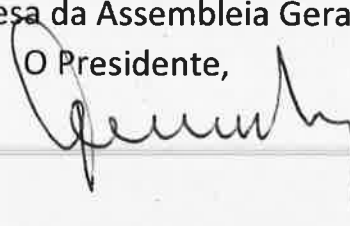 esa da Assembleia Gera
O Presidente,